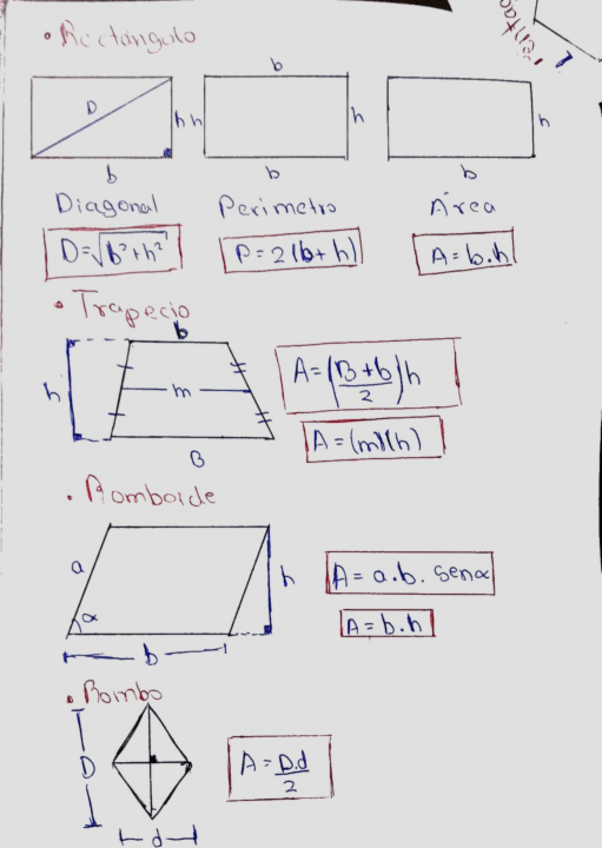 • Rectángulo
b
D
h h
h
h
b
b
b
Diagonal Perimetro Área
D=√b²+h²
P=2(b+h)
A=b.h
• Trapecio
b
h
m
B
A=(B+b/2)h
A=(m)(h)
• Romboide
a
α
h
b
A=a.b. senα
A=b.h
• Rombo
D
d
A=D.d/2